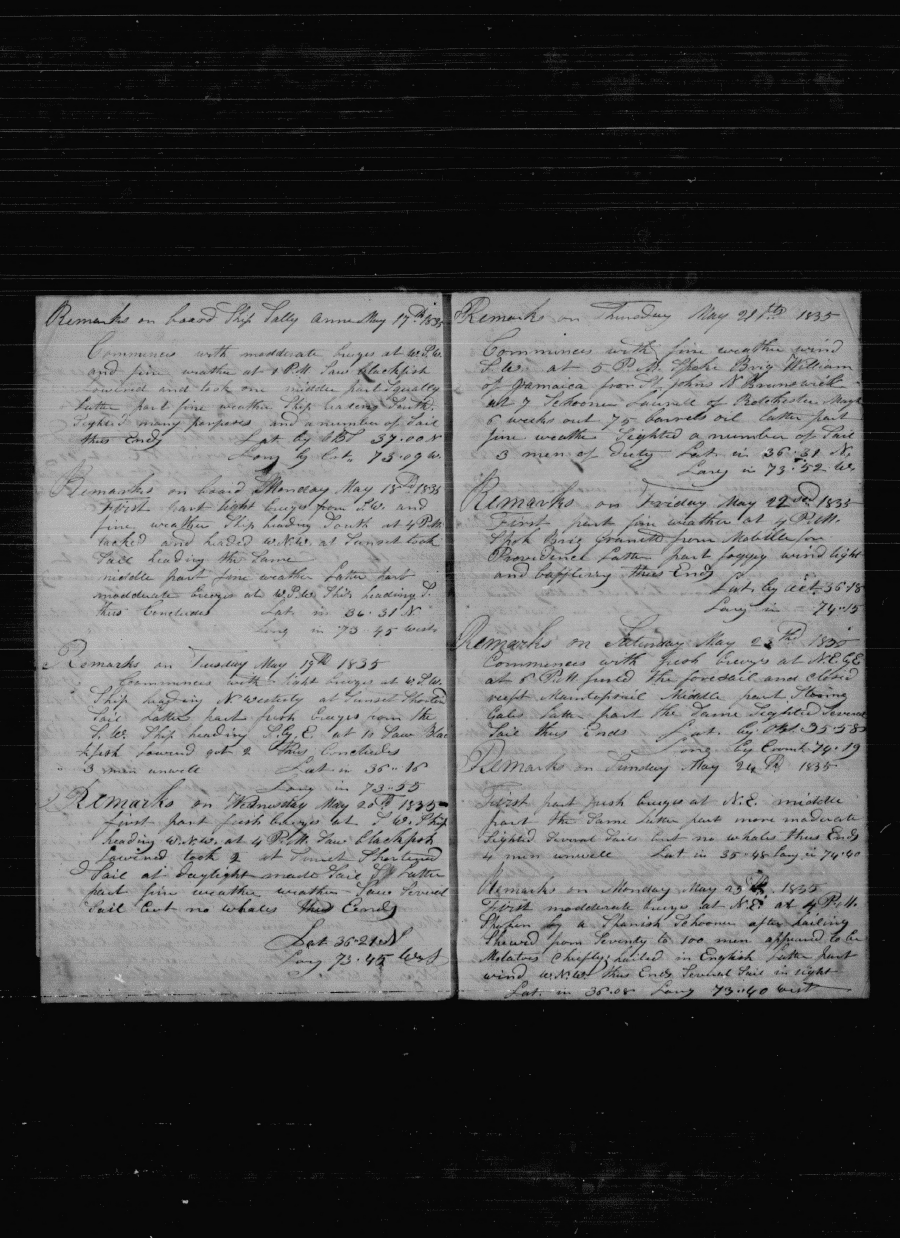 Remarks on board Ship Sally Anne May 17th 1835
Commences with modderate breezes at W.S.W.
and fine weather at 1 P.M. Saw blackfish
lowered and took one middle part Squally
latter part fine weather Ship heading South
Sighted many porpoises and a number of Sail
thus Ends Lat by Obs 37.00 N
Long by 73.09 W.
Remarks on board Monday May 18th 1835
First part light breezes from S.W. and
fine weather Ship heading South at 4 P.M.
tacked and headed W.N.W. at Sunset took
Sail heading the Same
middle part fine weather Latter part
modderate breezes at W.S.W. Ship heading S.
thus Concludes Lat in 36.31 N
Long in 73.45 west
Remarks on Tuesday May 19th 1835
Commences with light breezes at W.S.W.
Ship heading N. Westerly at Sunset Shortened
Sail Latter part fresh breezes from the
S.W. Ship heading S.E. at 10 Saw Blac
kfish lowered got 2 thus Concludes
3 men unwell Lat in 36.16
Long in 73.55
Remarks on Wednesday May 20th 1835
First part fresh breezes at S.W. Ship
heading W.N.W. at 4 P.M. Saw blackfish
Lowered took 2 at Sunset Shortened
Sail at daylight made Sail Latter
part fine weather weather Saw Several
Sail but no whales thus Ends
Lat 36.21 N
Long 73.45 West
Remarks on Thursday May 21st 1835
Commences with fine weather wind
S.W. at 5 P.M. Spoke Brig William
of Jamaica from St. Johns N Brunswick
at 7 Schooner Laurell of Rochester
6 weeks out 75 barrels oil latter part
fine weather Sighted a number of Sail
3 men of Duty Lat in 36.31 N,
Long in 73.52 W.
Remarks on Friday May 22nd 1835
First part fine weather at 4 P.M.
Spok Brig Granite from Mobille for
Providence Latter part foggy wind light
and baffling thus Ends
Lat by act 36.18
Long in 74.15
Remarks on Saturday May 23th 1835
Commences with fresh breezes at N.E.
at 6 P.M. furled the foresail and closed
reeft Maintopsail Middle part Strong
Gales latter part the Same Sighted Several
Sail thus Ends Lat. by Obs. 35.58
Long by 74.19
Remarks on Sunday May 24th 1835
First part fresh breezes at N.E. middle
part the Same latter part more modderate
Sighted Several Sails but no whales thus Ends
4 men unwell Lat in 35.48 Long in 74.40
Remarks on Monday May 25th 1835
First modderate breezes at N.E. at 4 P.M.
Spoken by a Spanish Schooner after hailing
Shewed from Seventy to 100 men appeared to be
Molatos Chiefly hailed in English Latter part
wind W.N.W. thus Ends Several Sail in sight
Lat. in 36.08 Long 73.40 west